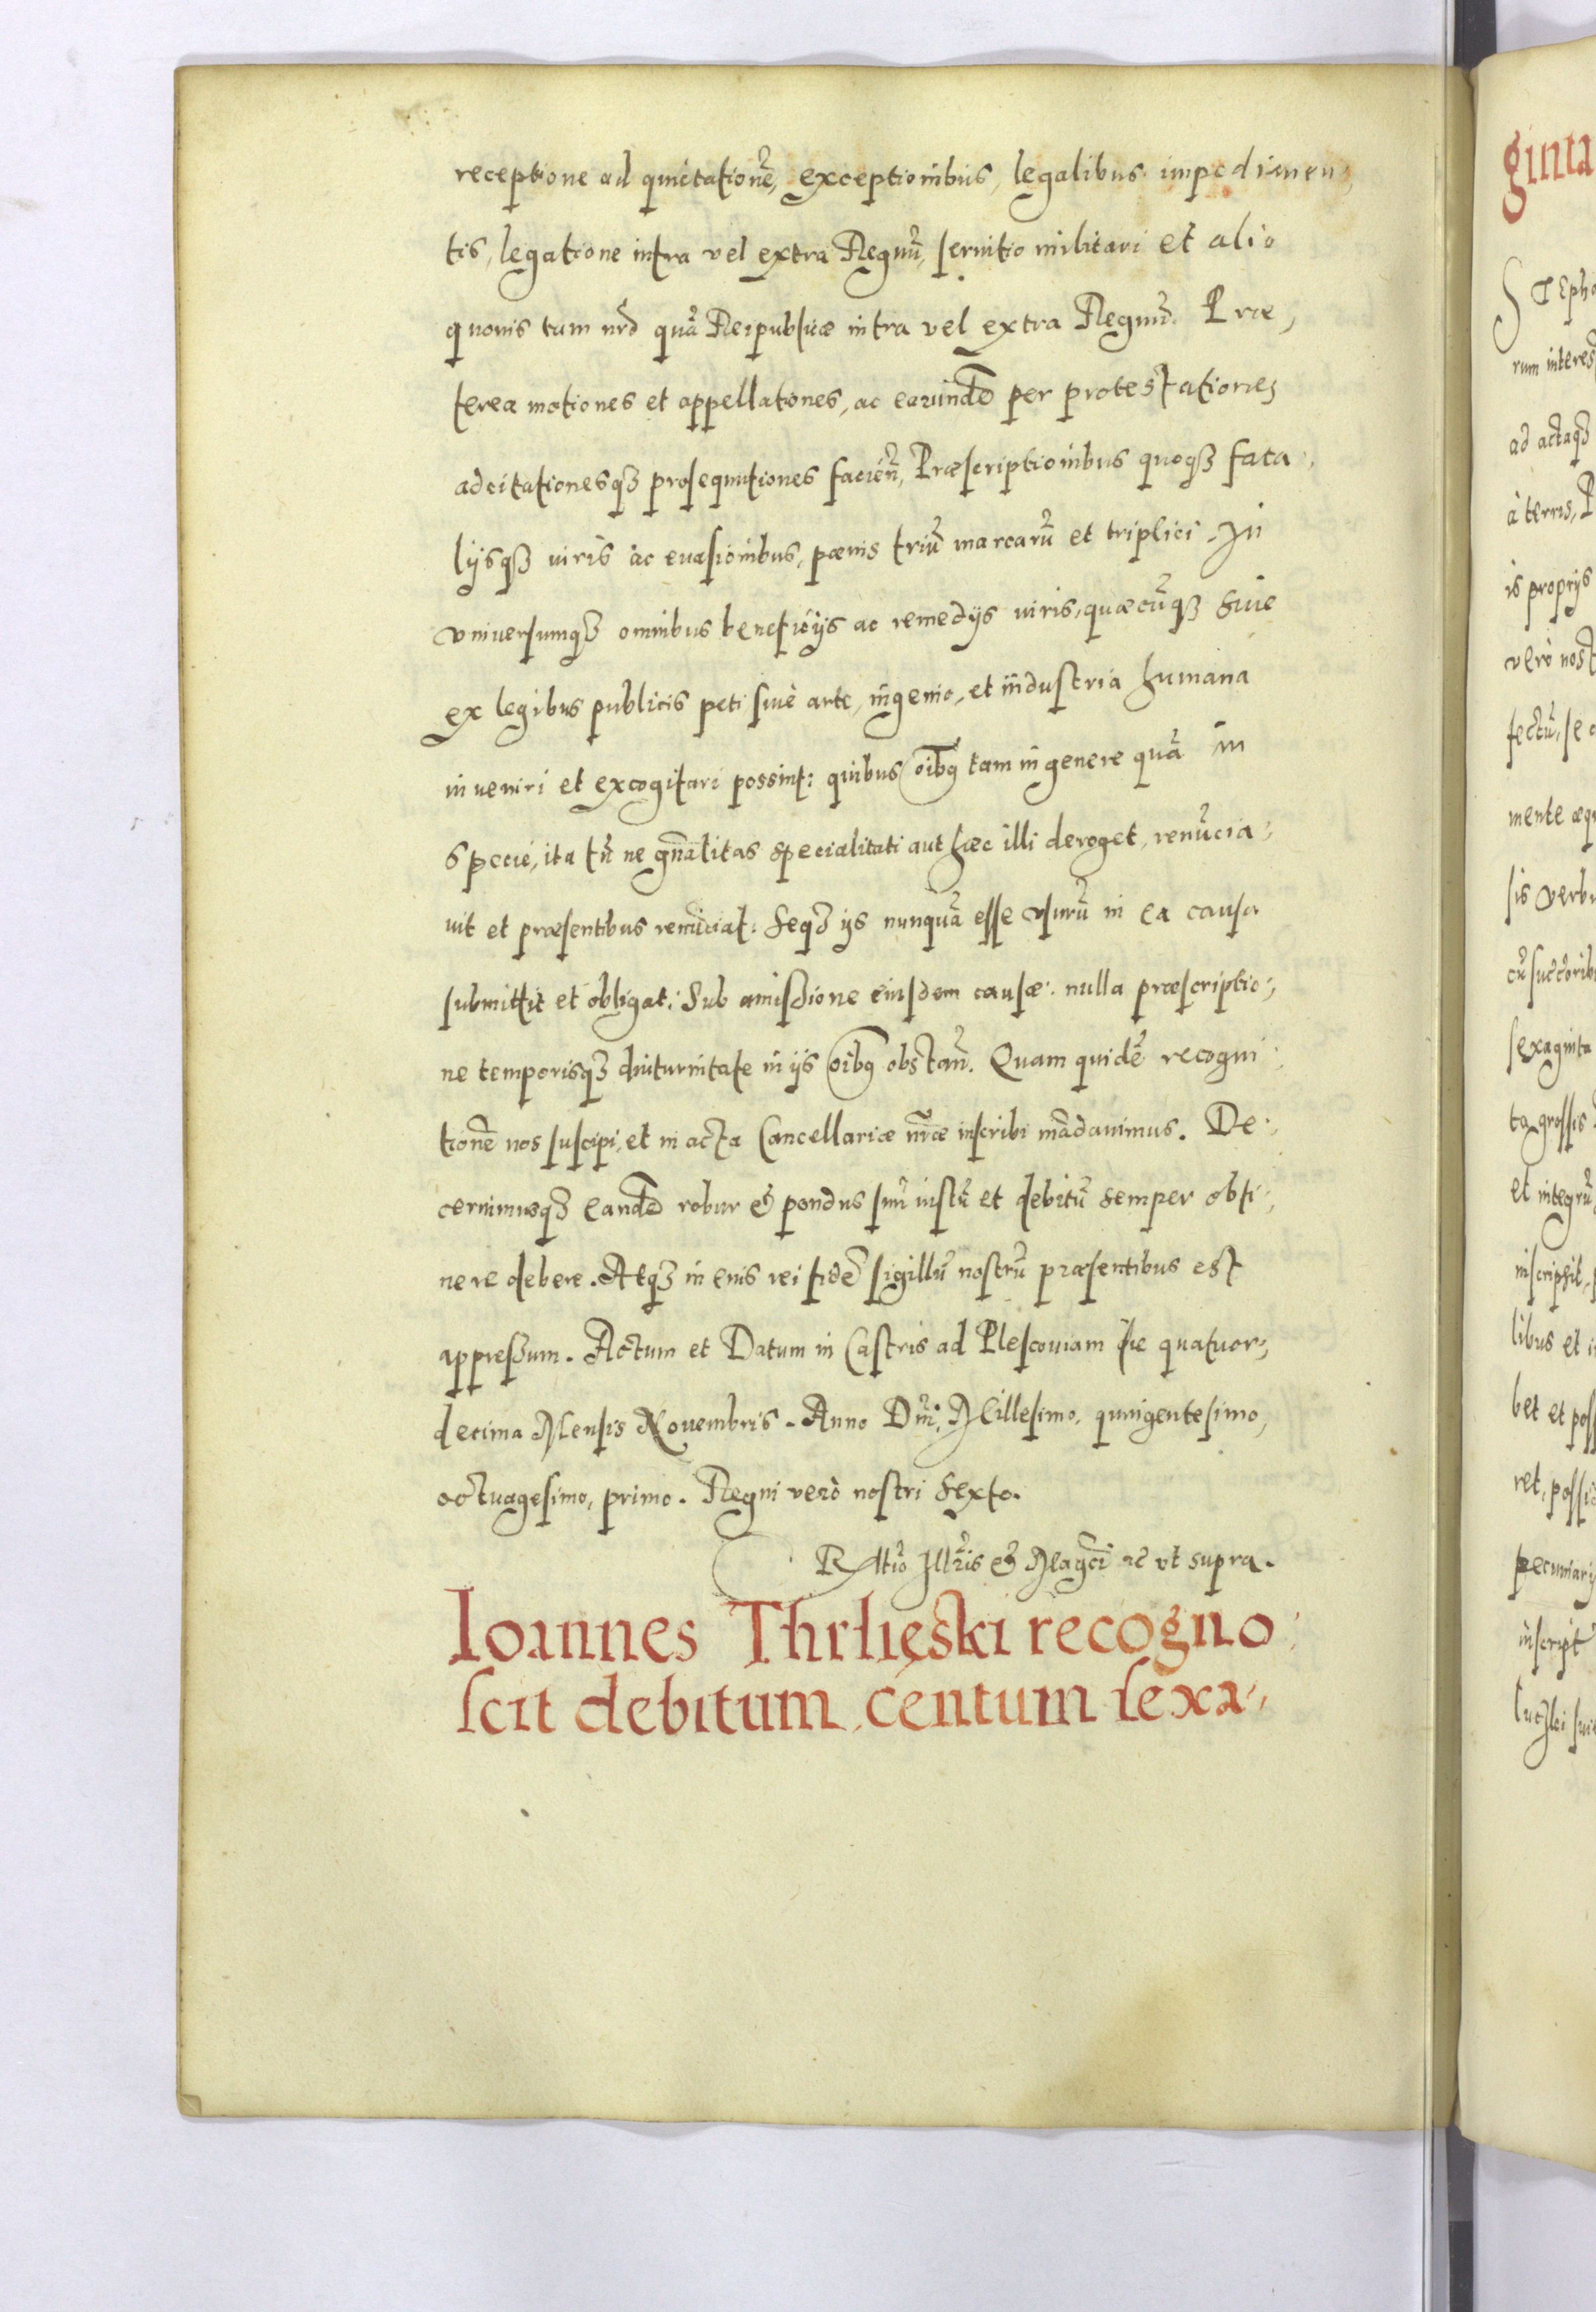 receptione ad quietationē, exceptionibus, legalibus impedimen,
tis, legatione intra vel extra Regnū, seruitio militari et alio
quouis tam nr̄o quā Reipublicæ intra vel extra Regnū. Præ,
terea motiones et appellationes, ac earundē per protestationes
adcitationesq3 prosequutiones facien̄, Præscriptionibus quoq3 fata,
lijsq3 iuris ac euasionibus, pœnis triū marcarū et triplici. In
vniuersumq3 omnibus beneficijs ac remedijs iuris, quæcūq3 siue
ex legibus publicis peti siuè arte, ingenio, et industria humana
inueniri et excogitari possint: quibus oib9 tam in genere quā in
specie, ita tn̄ ne gn̄alitas specialitati aut hæc illi deroget, renūcia,
uit et præsentibus renūciat: Seq3 ijs nunquā esse vsurū in ea causa
submittit et obligat: Sub amissione eiusdem causæ: nulla præscriptio,
ne temporisq3 diuturnitate in ijs oib9 obstan̄. Quam quidē recogni,
tionē nos suscipi, et in acta Cancellariæ nr̄æ inscribi mādauimus. De,
cernimusq3 eandē robur & pondus suū iustū et debitū semper obti,
nere debere. Atq3 in euis rei fidē sigillū nostrū præsentibus est
appressum. Actum et Datum in Castris ad Plescouiam die quatuor,
decima Mensis Nouembris. Anno Dn̄i: Millesimo, quingentesimo,
octuagesimo, primo. Regni verò nostri sexto.
Rltio Illr̄is & Magci ac vt supra.
Ioannes Thrlięski recogno,
scit debitum, centum sexa,
ginta
STepha
rum interes
ad actaq3
à terris, P
is proprijs
verò nost
fectū, se
mente æq
sis verbu
cū succ̄orib
sexaginta
ta grossis
et integrū
inscripsit,
libus et i
bet et poss
ret, possi
pecuniari
inscript